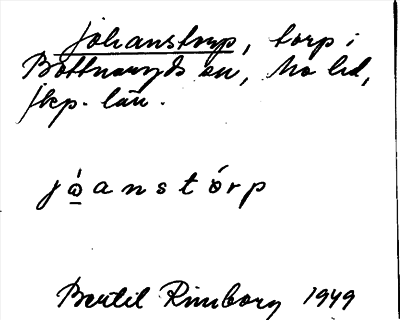 Johanstorp, torp i
Bottnaryds sn, Mo hd,
Jkp. län.
jòanstórp
Bertil Rimborg 1949